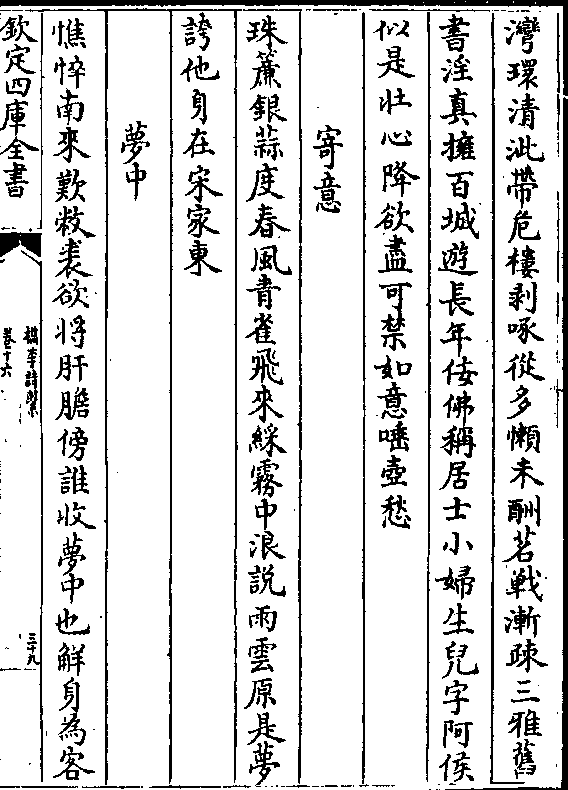 灣環清泚帶危樓剥啄從多懶未酬茗戰漸疎三雅舊
書淫真擁百城遊長年佞佛稱居士小婦生兒字阿侯
似是壯心降欲盡可禁如意唾壺愁
寄意
珠簾銀蒜度春風青雀飛來綵霧中浪説雨雲原是夢
誇他身在宋家東
夢中
憔悴南來歎敝裘欲將肝膽傍誰收夢中也解身為客
欽定四庫全書
檇李詩繫
卷十六
三十九